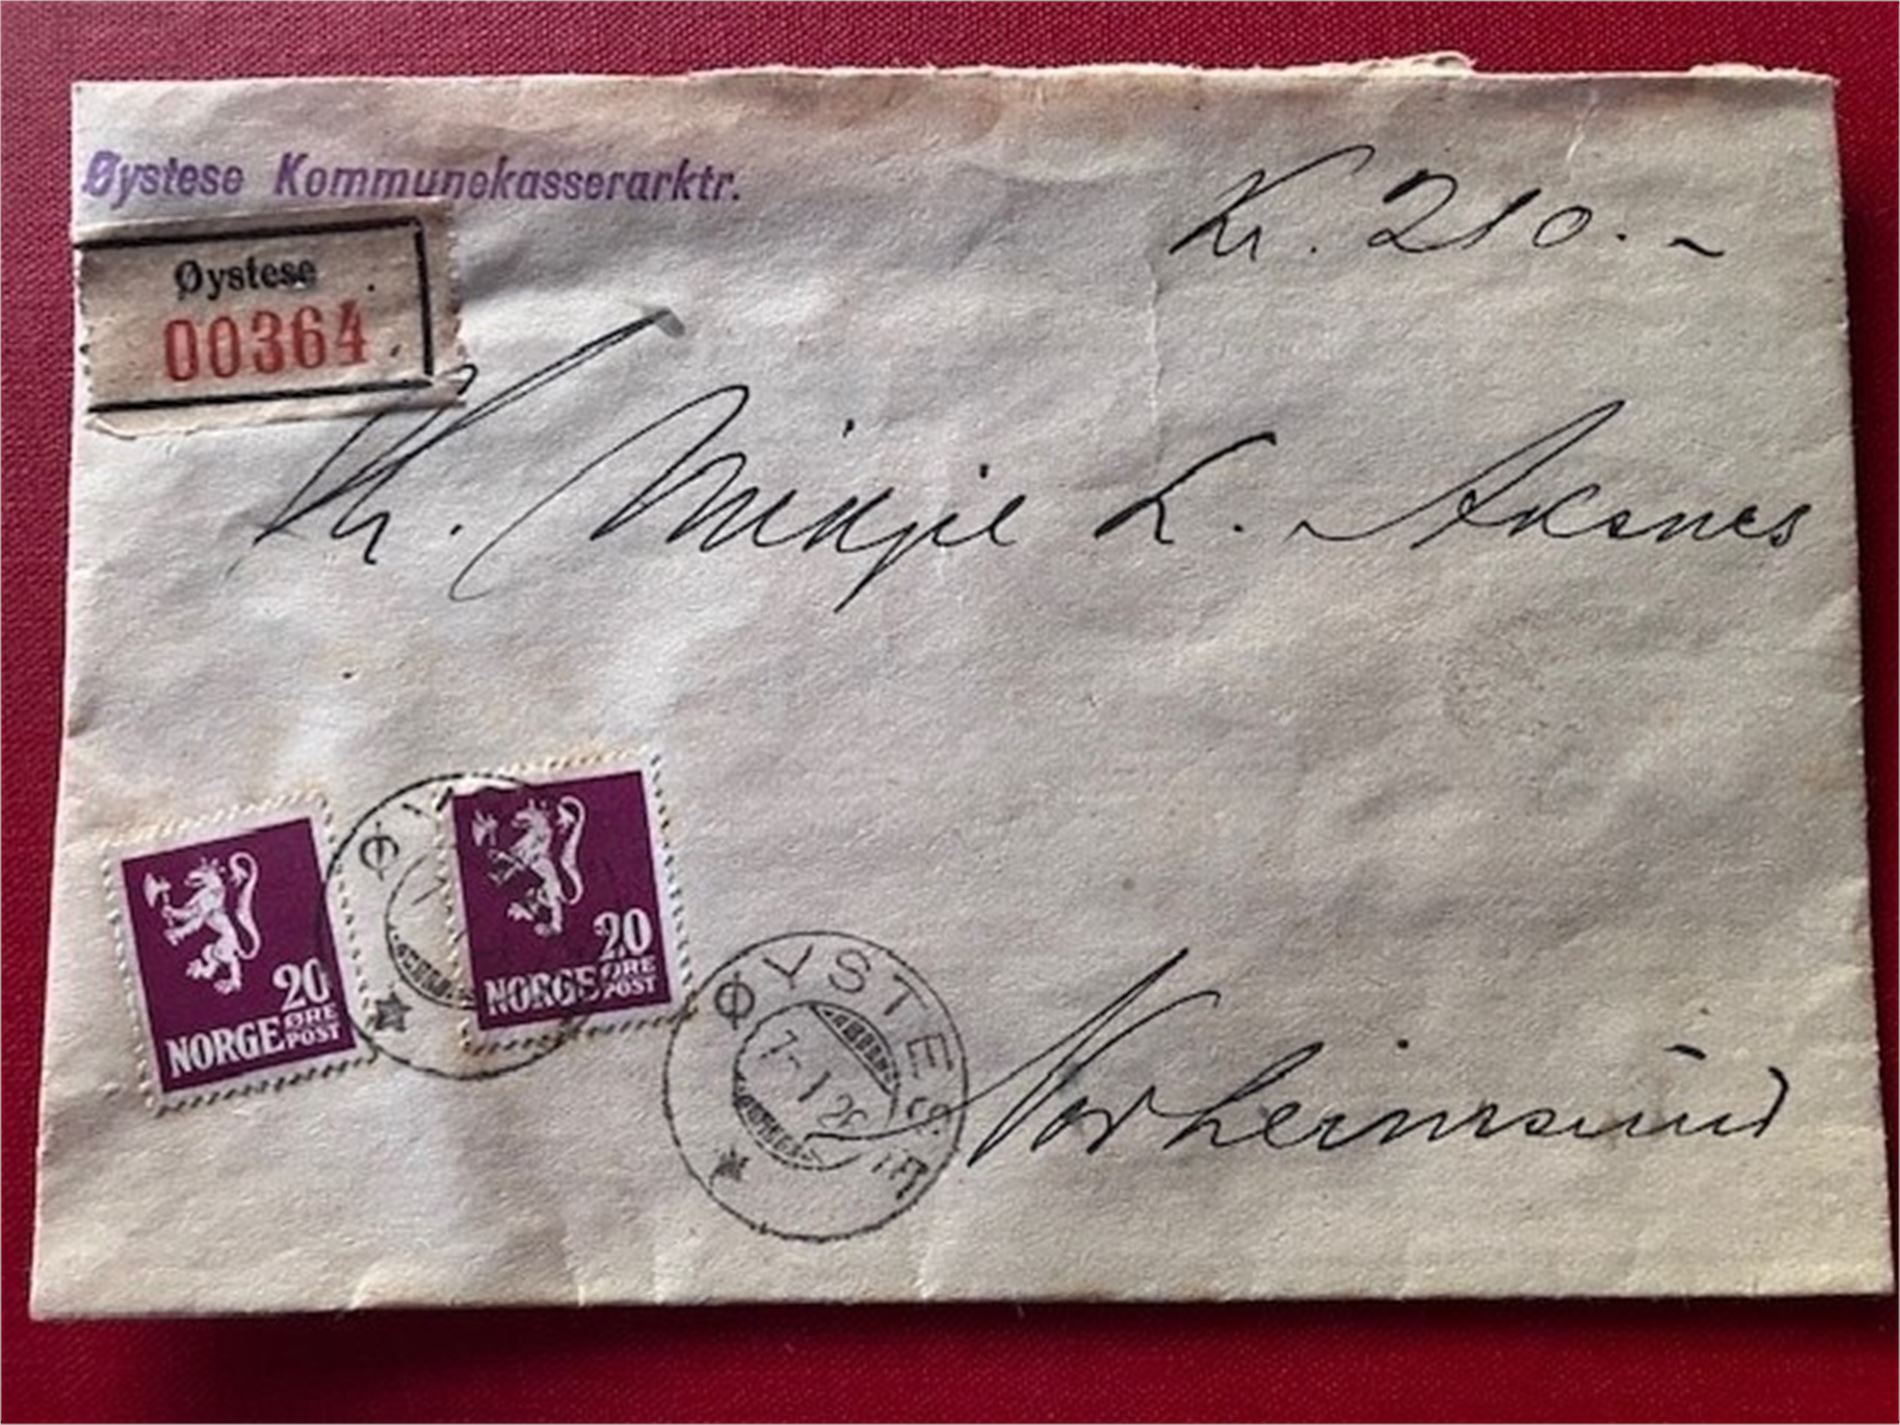 Øystese Kommunekasserarktr.
Kr. 210.-
Øystese
00364
Hr. Mikjel L. Aksnes
20
NORGE ØRE
POST
20
NORGE ØRE
POST
ØYSTESE
7-1 26
Norheimsund